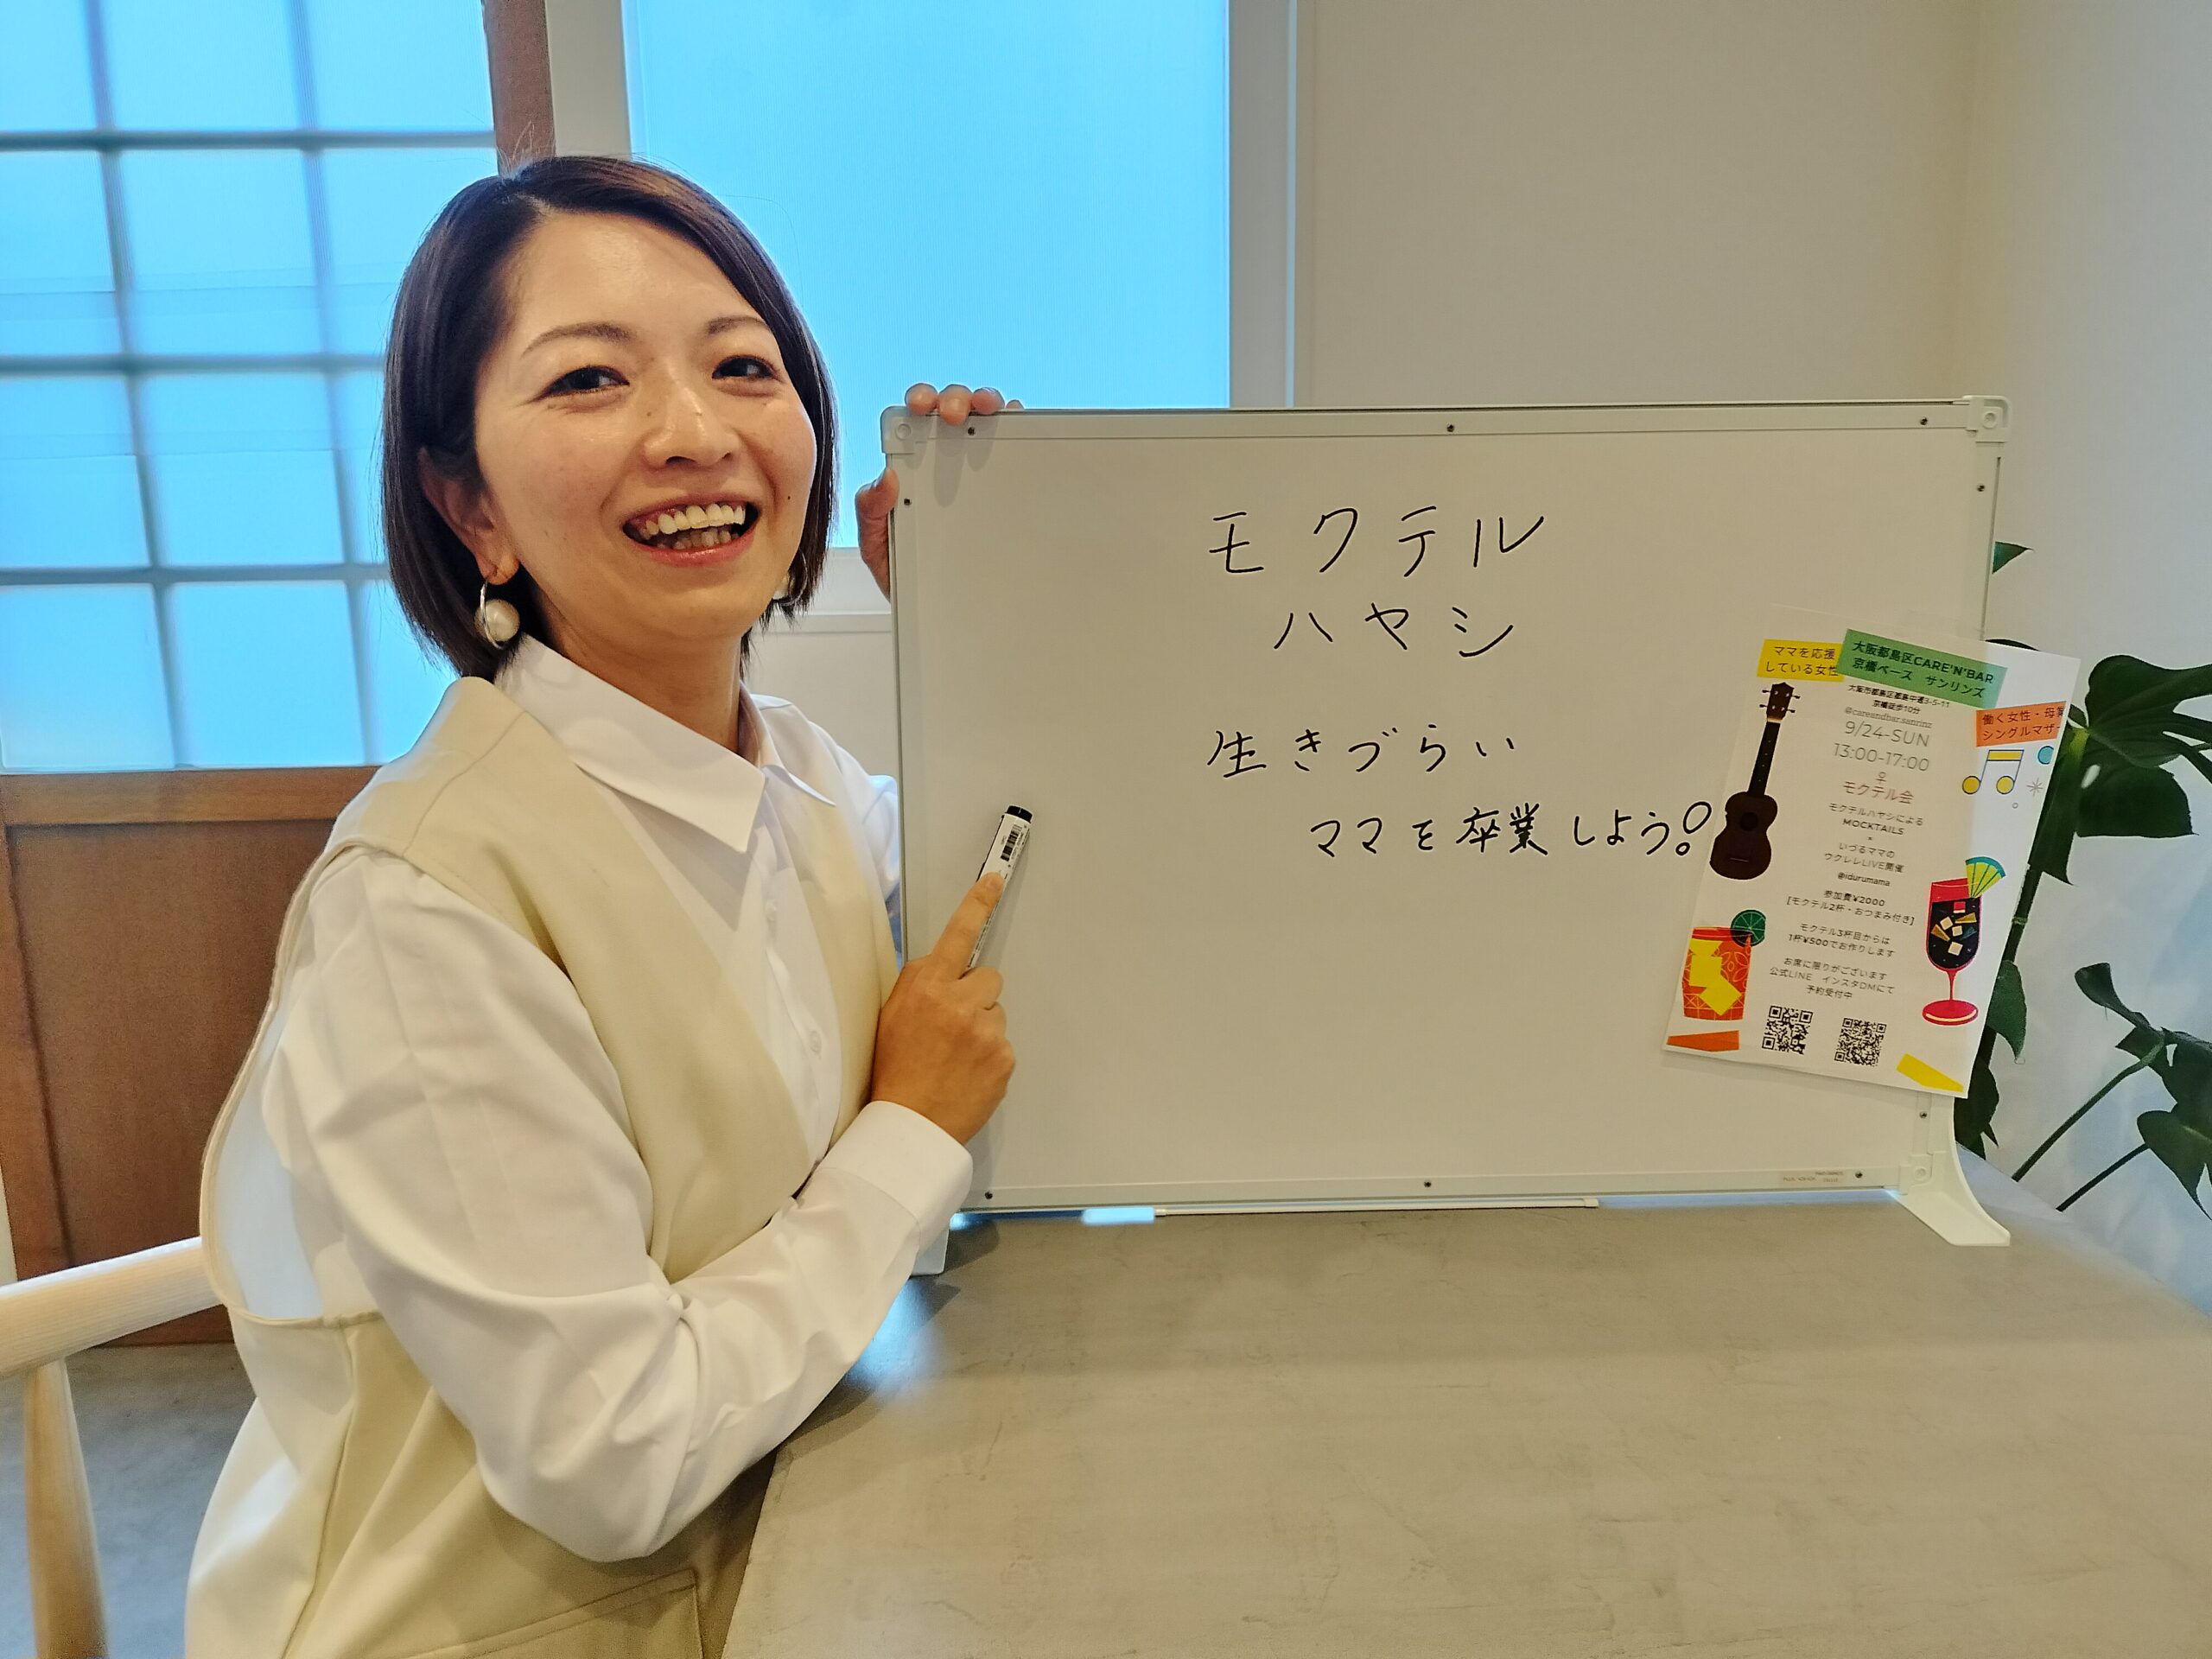 モクテル
ハヤシ
生きづらい
ママを卒業しよう!
ママを応援
している女性
大阪都島区CARE'N'BAR
京橋ベース サンリンズ
大阪市都島区都島中通3-5-11
京橋徒歩10分
@careandbar.sanrinz
働く女性・母
シングルマザ
9/24-SUN
13:00-17:00
モクテル会
モクテルハヤシによる
MOCKTAILS
×
いづるママの
ウクレレLIVE開催
@idurumama
参加費¥2000
[モクテル2杯・おつまみ付き]
モクテル3杯目からは
1杯¥500でお作りします
お席に限りがございます
公式LINE インスタDMにて
予約受付中